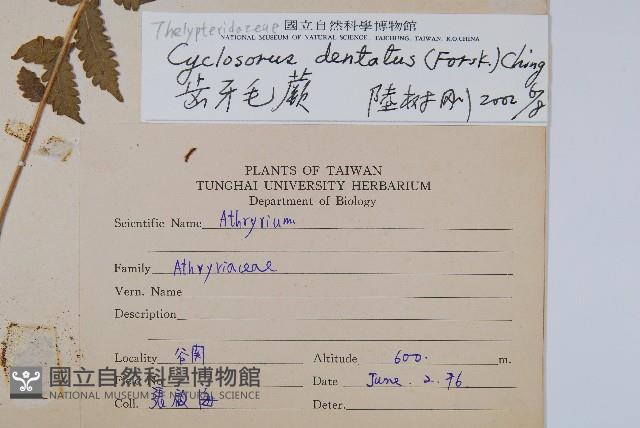 Thelypteridaceae 國立自然科學博物館
NATIONAL MUSEUM OF NATURAL SCIENCE, TAICHUNG, TAIWAN, R.O.CHINA
Cyclosorus dentatus (Forsk.) Ching
齒牙毛蕨 陸樹剛 2002 6/8
PLANTS OF TAIWAN
TUNGHAI UNIVERSITY HERBARIUM
Department of Biology
Scientific Name Athryrium
Family Athryriaceae
Vern. Name
Description
Locality 谷関 Altitude 600. m.
國立自然科學博物館
Date June. 2. 76
NATIONAL MUSEUM OF NATURAL SCIENCE
Coll. 張 梅 Deter.